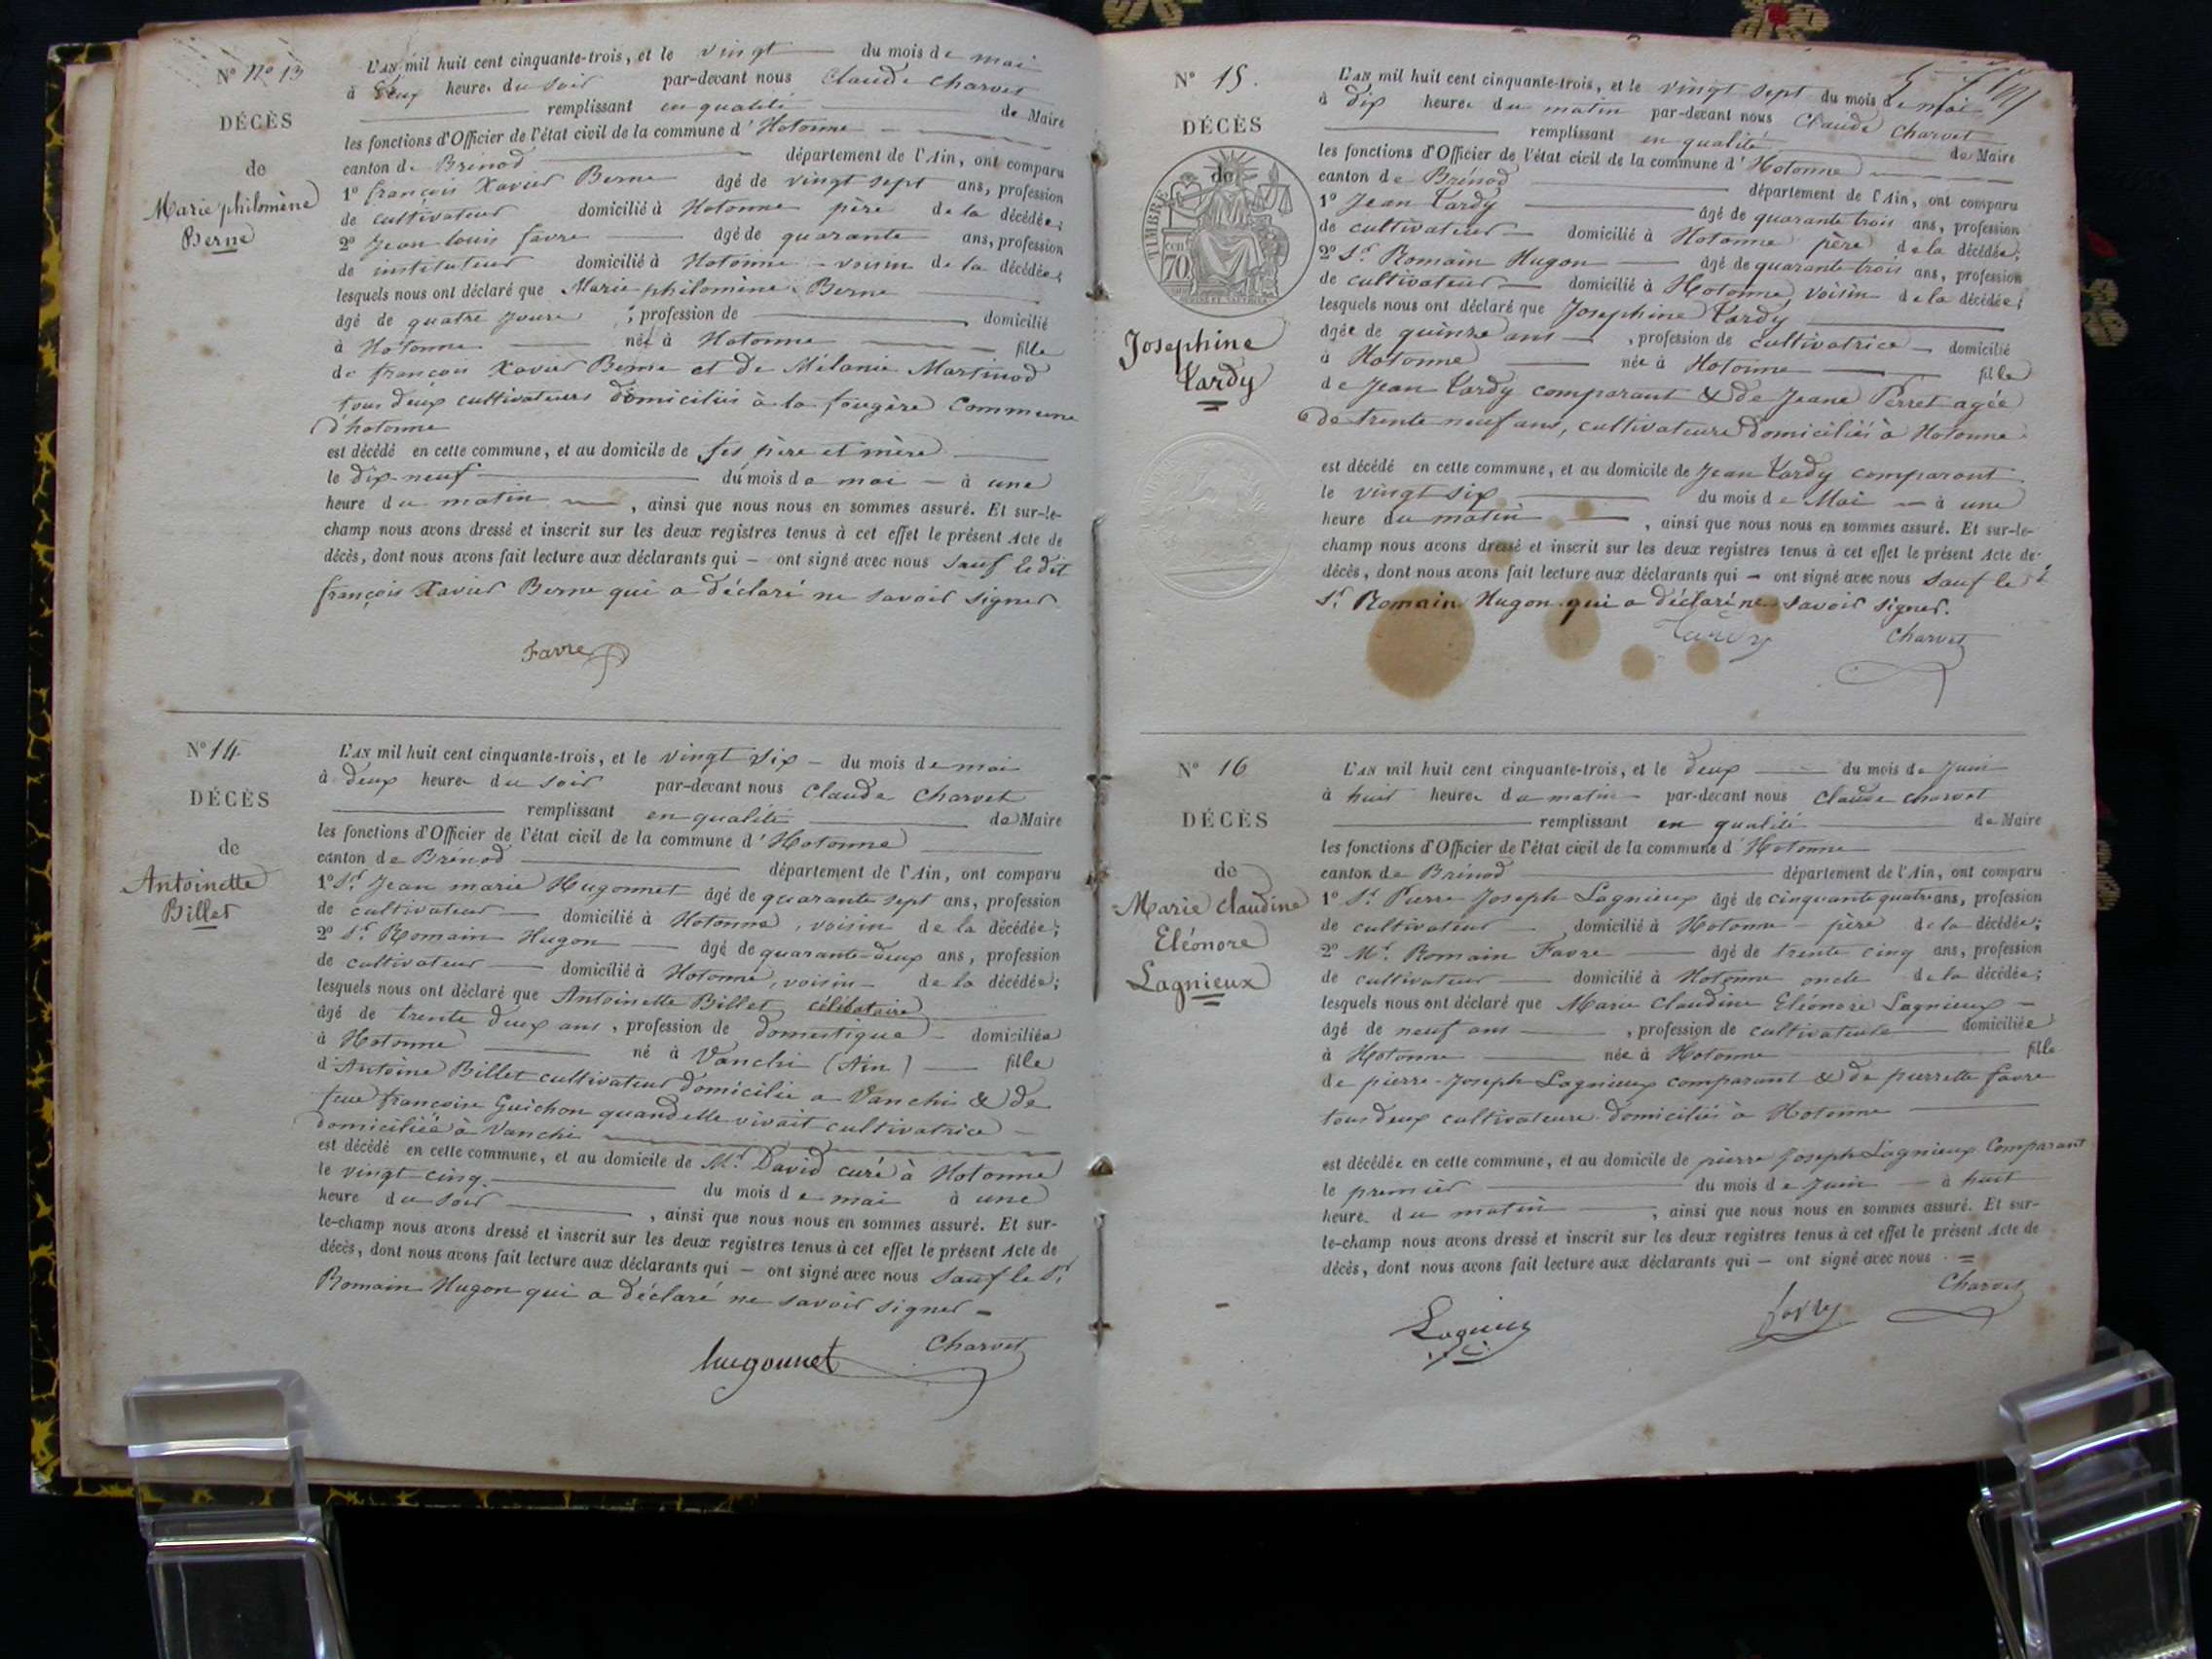 N° n° 13
DÉCÈS
de
Marie philomène
Berne
L'AN mil huit cent cinquante-trois, et le vingt du mois de mai
à deux heures du soir par-devant nous Claude Charvet
remplissant en qualité de Maire
les fonctions d'Officier de l'état civil de la commune d'Hotonne
canton de Brénod département de l'Ain, ont comparu
1° françois Xavier Berne âgé de vingt sept ans, profession
de cultivateur domicilié à Hotonne père de la décédée;
2° Jean louis favre âgé de quarante ans, profession
de instituteur domicilié à Hotonne - voisin de la décédée;
lesquels nous ont déclaré que Marie philomène Berne
âgé de quatre jours, profession de domicilié
à Hotonne née à Hotonne fille
de françois Xavier Berne et de Mélanie Martinod
tous deux cultivateurs domiciliés à la fougère Commune
d'hotonne
est décédé en cette commune, et au domicile de ses père et mère
le dix-neuf du mois de mai - à une
heure du matin, ainsi que nous nous en sommes assuré. Et sur-le-
champ nous avons dressé et inscrit sur les deux registres tenus à cet effet le présent Acte de
décès, dont nous avons fait lecture aux déclarants qui - ont signé avec nous Sauf le dit
françois Xavier Berne qui a déclaré ne savoir signer
Favre
N° 14.
DÉCÈS
de
Antoinette
Billet
L'AN mil huit cent cinquante-trois, et le vingt six - du mois de mai
à deux heures du soir par-devant nous Claude Charvet
remplissant en qualité de Maire
les fonctions d'Officier de l'état civil de la commune d'Hotonne
canton de Brénod département de l'Ain, ont comparu
1° Sr. Jean marie Hugonnet âgé de quarante sept ans, profession
de cultivateur domicilié à Hotonne, voisin de la décédée;
2° Sr. Romain Hugon âgé de quarante-deux ans, profession
de cultivateur domicilié à Hotonne, voisin de la décédée;
lesquels nous ont déclaré que Antoinette Billet célibataire
âgé de trente deux ans, profession de domestique domiciliée
à Hotonne né à Vanchi (Ain) fille
d'Antoine Billet cultivateur domicilié a Vanchi & de
feue françoise Guichon quand elle vivait cultivatrice
domiciliée à Vanchi
est décédé en cette commune, et au domicile de Mr. David curé à Hotonne
le vingt-cinq du mois de mai à une
heure du soir, ainsi que nous nous en sommes assuré. Et sur-
le-champ nous avons dressé et inscrit sur les deux registres tenus à cet effet le présent Acte de
décès, dont nous avons fait lecture aux déclarants qui - ont signé avec nous Sauf le Sr.
Romain Hugon qui a déclaré ne savoir signer =
hugonnet Charvet
N° 15.
DÉCÈS
de
TIMBRE
70 cen
Josephine
Tardy
L'AN mil huit cent cinquante-trois, et le vingt sept du mois de mai
à dix heures du matin par-devant nous Claude Charvet
remplissant en qualité de Maire
les fonctions d'Officier de l'état civil de la commune d'Hotonne
canton de Brénod département de l'Ain, ont comparu
1° Jean Tardy âgé de quarante trois ans, profession
de cultivateur domicilié à Hotonne père de la décédée;
2° Sr. Romain Hugon âgé de quarante-trois ans, profession
de cultivateur domicilié à Hotonne, voisin de la décédée;
lesquels nous ont déclaré que Josephine Tardy
âgée de quinze ans, profession de cultivatrice domicilié
à Hotonne née à Hotonne fille
de Jean Tardy comparant & de Jeane Perret agée
de trente neuf ans, cultivateurs domiciliés à Hotonne
est décédé en cette commune, et au domicile de Jean Tardy comparant
le vingt six du mois de Mai - à une
heure du matin, ainsi que nous nous en sommes assuré. Et sur-le-
champ nous avons dressé et inscrit sur les deux registres tenus à cet effet le présent Acte de
décès, dont nous avons fait lecture aux déclarants qui - ont signé avec nous sauf le
Sr. Romain Hugon qui a déclaré ne savoir signer.
Tardy Charvet
N° 16
DÉCÈS
de
Marie claudine
Eléonore
Lagnieux
L'AN mil huit cent cinquante-trois, et le deux du mois de Juin
à huit heures du matin par-devant nous Claude Charvet
remplissant en qualité de Maire
les fonctions d'Officier de l'état civil de la commune d'Hotonne
canton de Brénod département de l'Ain, ont comparu
1° Sr. Pierre Joseph Lagnieux âgé de cinquante quatre ans, profession
de cultivateur domicilié à Hotonne - père de la décédée;
2° Mr. Romain Favre âgé de trente cinq ans, profession
de cultivateur domicilié à Hotonne oncle de la décédée;
lesquels nous ont déclaré que Marie Claudine Eléonore Lagnieux
âgé de neuf ans, profession de cultivateur domiciliée
à Hotonne née à Hotonne fille
de pierre-Joseph Lagnieux comparant & de pierrette favre
tous deux cultivateurs domiciliés à Hotonne
est décédée en cette commune, et au domicile de pierre Joseph Lagnieux Comparant
le premier du mois de Juin - à huit
heure du matin, ainsi que nous nous en sommes assuré. Et sur-
le-champ nous avons dressé et inscrit sur les deux registres tenus à cet effet le présent Acte de
décès, dont nous avons fait lecture aux déclarants qui - ont signé avec nous =
Lagnieux favre Charvet